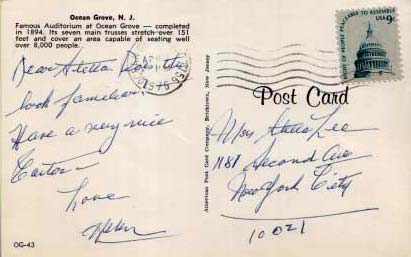 Ocean Grove, N. J.
Famous Auditorium at Ocean Grove — completed
in 1894. Its seven main trusses stretch over 151
feet and cover an area capable of seating well
over 8,000 people.
Dear Stella Does this
look familiar.
Have a very nice
Easter
Love
Helen
OG-43
American Post Card Company, Bricktown, New Jersey
RIGHT OF PEOPLE PEACEABLY TO ASSEMBLE
USA 9c
Post Card
Stella Lee
1181 Second Ave
New York City
10021